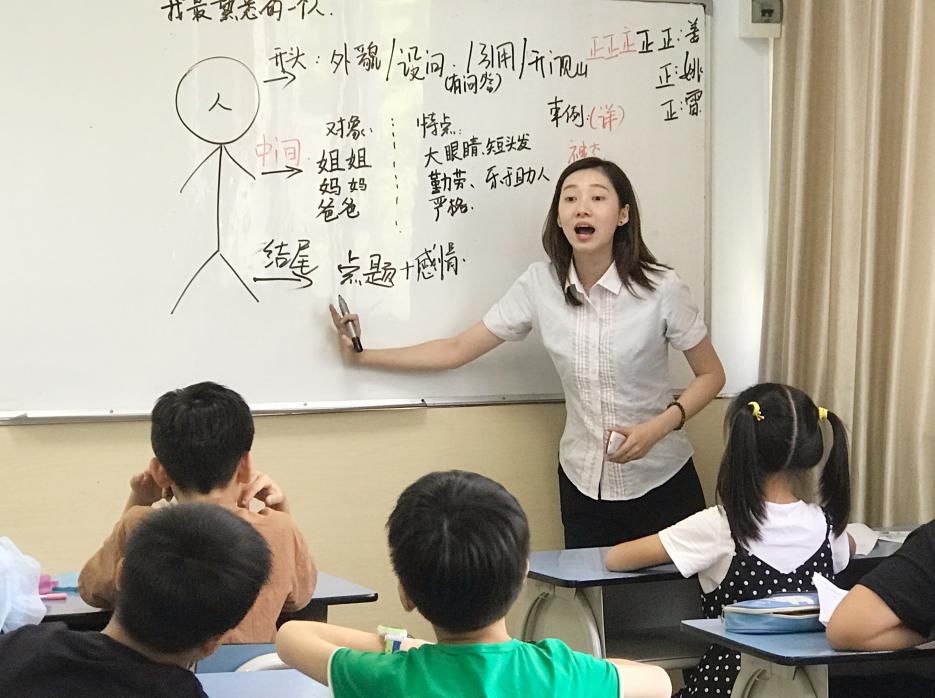 我最熟悉的一个人.
开头:外貌/设问/引用/开门见山
(有问答)
正正正正正:善
正:姚
正:雷
人
中间
对象:
特点:
事例:(详)
姐姐
大眼睛、短头发
妈妈
勤劳、乐于助人
爸爸
严格.
结尾
点题+感情.